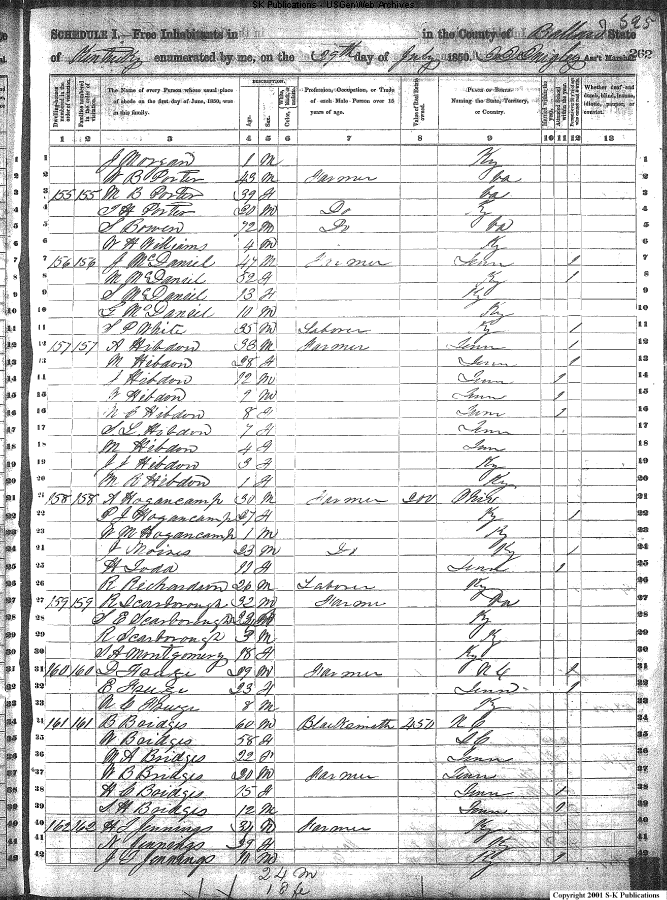 S-K Publications - USGenWeb Archives
595
SCHEDULE I.—Free Inhabitants in in the County of Ballard State
of Kentucky enumerated by me, on the 29th day of July 1850. Ass't Marshal 262
DESCRIPTION.
Dwelling-houses numbered in the order of visitation.
Families numbered in the order of visitation.
The Name of every Person whose usual place of abode on the first day of June, 1850, was in this family.
Age.
Sex.
Color, White, black, or mulatto.
Profession, Occupation, or Trade of each Male Person over 15 years of age.
Value of Real Estate owned.
PLACE OF BIRTH. Naming the State, Territory, or Country.
Married within the year.
Attended School within the year.
Whether deaf and dumb, blind, insane, idiotic, pauper, or convict.
1 2 3 4 5 6 7 8 9 10 11 12 13
1 J Morgan 1 M Ky 1
2 W B Porter 43 M Farmer Va 2
3 155 155 M B Porter 39 F Va 3
4 Porter 20 M Do Ky 4
5 S Bowen 72 M Do Va 5
6 W H Williams 4 M Ky 6
7 156 156 J McDaniel 47 M Farmer Tenn 1 7
8 M McDaniel 52 F Ky 1 8
9 S McDaniel 13 F Ky 9
10 G McDaniel 10 M Ky 10
11 S P White 25 M Laborer Ky 1 11
12 157 157 A Hibdon 33 M Farmer Tenn 1 12
13 M Hibdon 28 F Tenn 1 13
14 J Hibdon 12 M Tenn 1 14
15 Hibdon 9 M Tenn 1 15
16 Hibdon 8 F Tenn 1 16
17 S L Hibdon 7 F Tenn 17
18 M Hibdon 4 F Tenn 18
19 J J Hibdon 3 F Ky 19
20 M R Hibdon 1 F Ky 20
21 158 158 A Hogancamp 30 M Farmer 200 Ohio 21
22 P J Hogancamp 27 F Ky 1 22
23 W M Hogancamp 1 M Ky 23
24 J Moines 23 M Do Ky 1 24
25 H Toda 11 F Tenn 1 25
26 R Richardson 26 M Laborer Ky 26
27 159 159 R Scarborough 32 M Farmer Va 27
28 S E Scarborough Ky 28
29 R Scarborough 3 M Ky 29
30 S A Montgomery 18 F Ky 30
31 160 160 29 M Farmer N C 31
32 E 23 F Tenn 1 32
33 8 M Ky 33
34 161 161 B Bridges 60 M Blacksmith 450 N C 34
35 W Bridges 58 F S C 35
36 M A Bridges 22 F Tenn 36
37 W B Bridges 20 M Farmer Tenn 37
38 H C Bridges 15 F Tenn 1 38
39 S H Bridges 12 M Tenn 1 39
40 162 162 H L Jennings 34 M Farmer Ky 40
41 N Jennings 29 F Ky 41
42 J C Jennings 11 M Ky 1 42
24 M
18 fe
Copyright 2001 S-K Publications